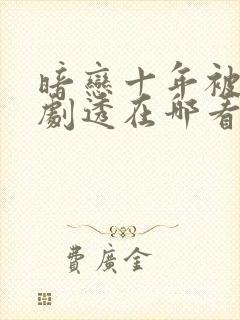 暗戀十年被
劇透在哪看
費廣金